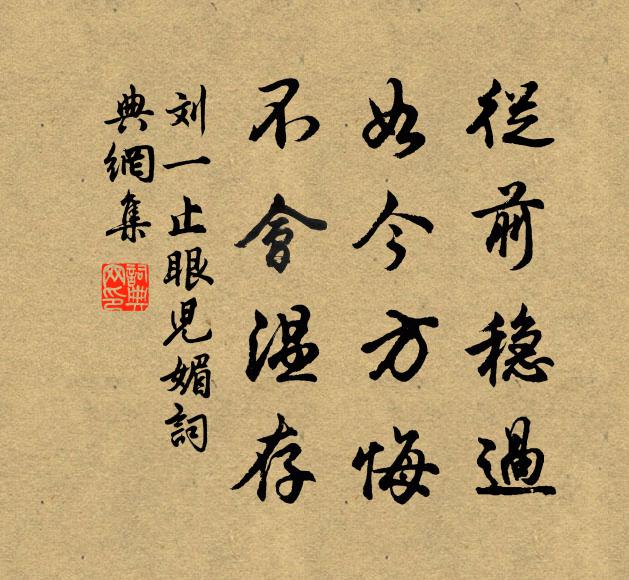 從前穩過
如今方悔
不會溫存
刘一止眼児媚詞
典網集
詞典
网印